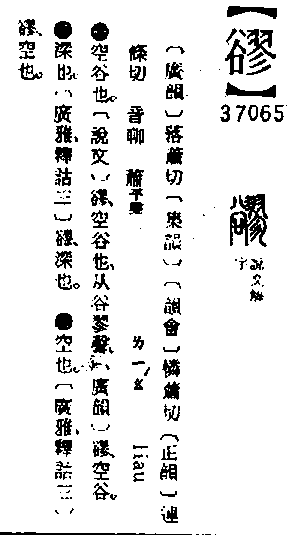 【豂】
37065
說文解
字
〔廣韻〕落蕭切〔集韻〕〔韻會〕憐蕭切〔正韻〕連
條切 音聊 蕭平聲 ㄌㄧㄠˊ liau
●空谷也。〔說文〕豂、空谷也、从谷翏聲。〔廣韻〕豂、空谷。
●深也。〔廣雅、釋詁三〕豂、深也。 ●空也。〔廣雅、釋詁三〕
豂、空也。